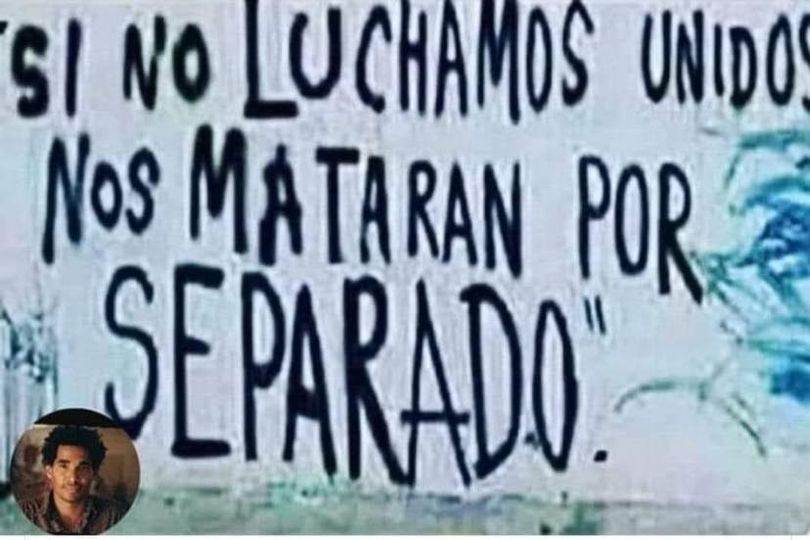 "SI NO LUCHAMOS UNIDOS
NOS MATARAN POR
SEPARADO".